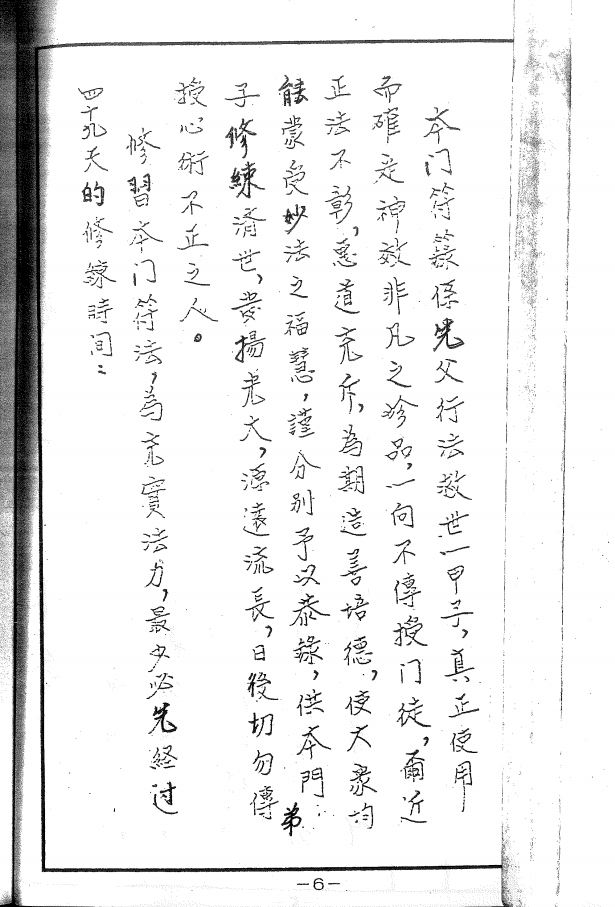 本门符籙係先父行法救世一甲子，真正使用
而確是神效非凡之珍品，一向不傳授门徒，爾近
正法不彰，惡道充斥，為期造善培德，使大衆均
能蒙受妙法之福慧，謹分别予以恭錄，供本門弟
子修練济世，發揚光大，源遠流長，日後切勿傳
授心術不正之人。
修習本门符法，為充實法力，最少必先経过
四十九天的修鍊時间：
-6-